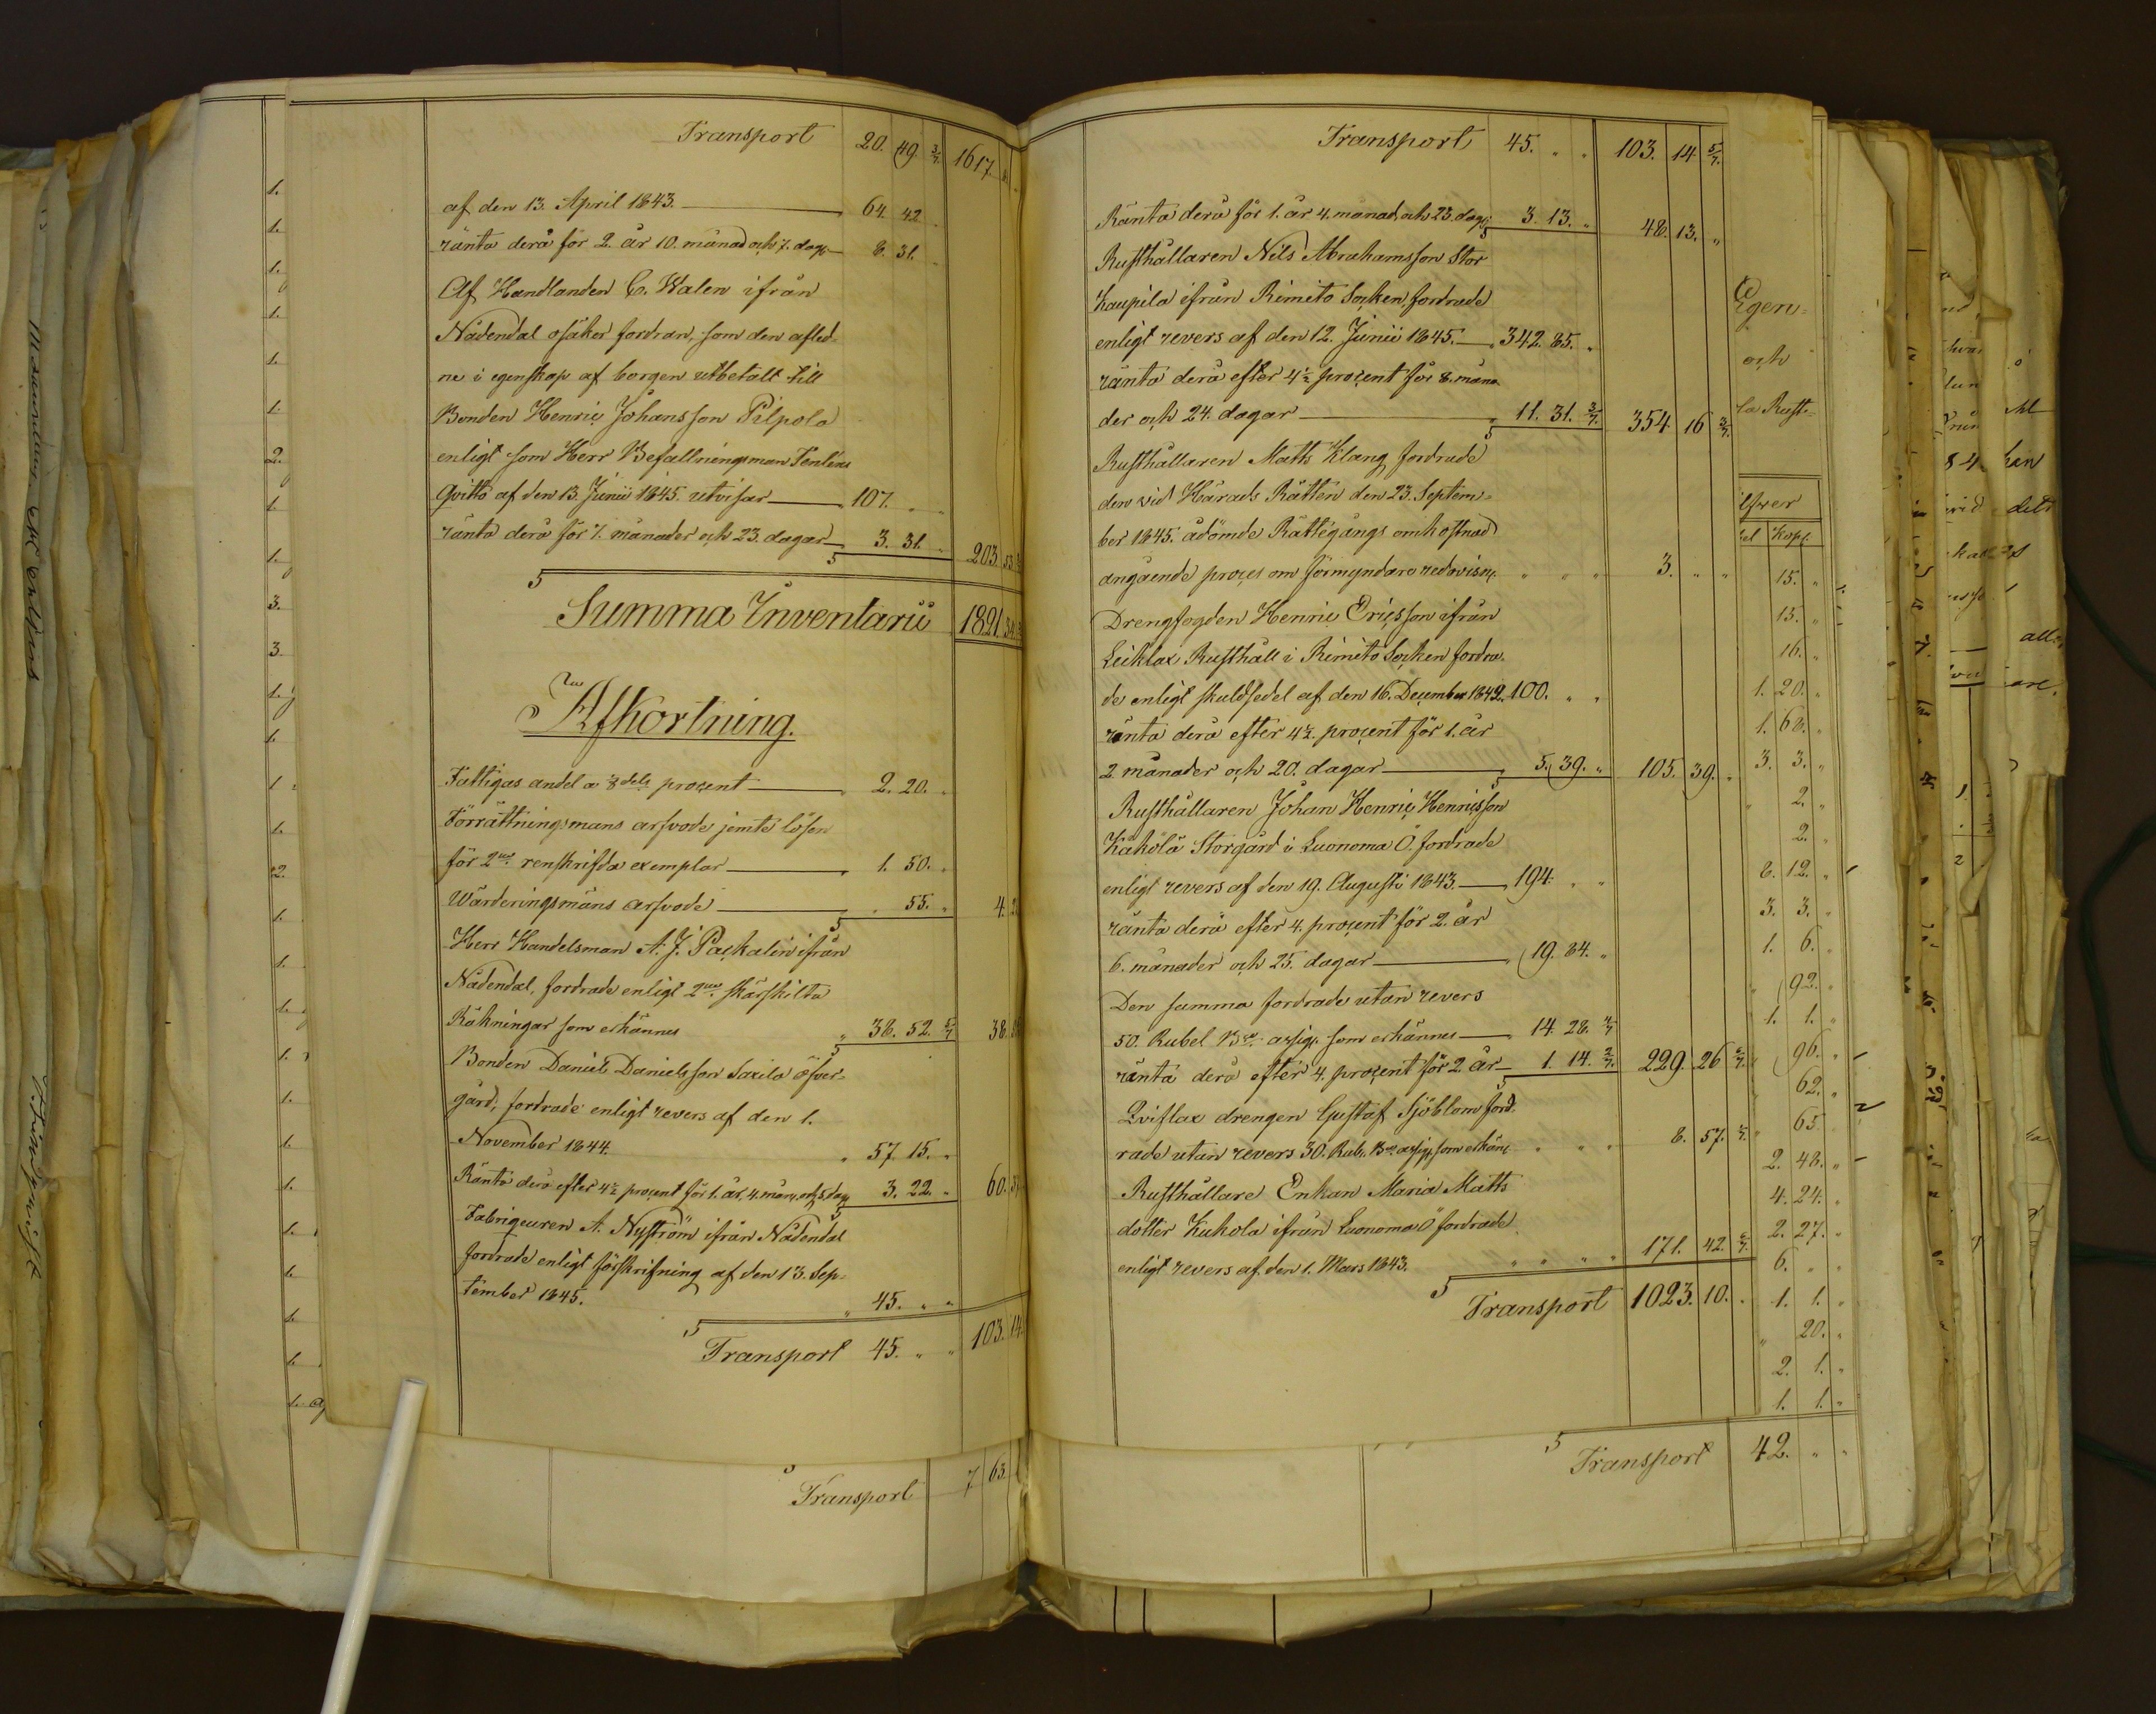 Transport 20. 49. 3/7. 1617.
af den 13. April 1843. 64. 42.
ränta derå för 2. år 10. månad och 7. dag. 8. 31.
Af Handlanden C. Walen ifrån
Nådendal osäker fordran, som den afled-
ne i egenskap af borgen utbetalt till
Bonden Henric Johansson Pilpola
enligt som Herr Befallningsman
Qvitto af den 13. Junii 1845. utvisar 107. " "
ränta derå för 7. månader och 23. dagar 3. 31. 203. 53.
Summa Inventarii 1821. 34.
Afkortning.
Fattigas andel a 8dels procent 2. 20. "
Förrättningsmans arfvode jemte lösen
för 2ne renskrifda exemplar 1. 50. "
Wärderingsmäns arfvode " 55. " 4.
Herr Handelsman A. J. Packalin ifrån
Nådendal, fordrade enligt 2ne särskilta
Räkningar som erkännes " 38. 52. 5/7 38.
Bonden Daniel Danielsson Saxila öfver-
gård, fordrade enligt revers af den 1.
November 1844. " 57. 15. "
Ränta derå efter 4½ procent för 1. år, 4. mån. och 5. dag. 3. 22. " 60.
Fabriqeuren A. Nyström ifrån Nådendal
fordrade enligt förskrifning af den 13. Sep-
tember 1845. " 45. " "
Transport 45. " " 103. 14.
Transport 7 63.
Transport 45. " " 103. 14 5/7.
Ränta derå för 1. år 4. månad. och 23. dag. 3. 13. " 48. 13. "
Rusthållaren Nils Abrahamsson Stor
Kaupila ifrån Rimito Socken fordrade
enligt revers af den 12. Junii 1845. 342. 85. "
ränta derå efter 4½ procent för 8. måna-
der och 24. dagar 11. 31. 3/7. 354. 16 3/7.
Rusthållaren Matts Klang fordrade
den vid Härads Rätten den 23. Septem-
ber 1845. ådömde Rättegångs omkostnad
angående proces om förmyndare redovisn. " " " 3. " "
Drengfogden Henric Ericsson ifrån
Leiklax Rusthåll i Rimito Socken fordra-
de enligt skuldsedel af den 16. December 1842. 100. " "
ränta derå efter 4½. procent för 1. år
2 månader och 20. dagar 5. 39. " 105. 39. "
Rusthållaren Johan Henric Henricsson
Kåkola Storgård i Luonoma Ö. fordrade
enligt revers af den 19. Augusti 1843. 194. " "
ränta derå efter 4. procent för 2. år
6. månader och 25. dagar 19. 84. "
Den samma fordrade utan revers
50. Rubel Bco assign. som erkännes 14. 28. 4/7
ränta derå efter 4. procent för 2 år 1. 14. 2/7. 229. 26 6/7.
Qvislax drengen Gustaf Sjöblom ford-
rade utan revers 30. Rub. Bco assign. som erkänn. " " " 8. 57. 1/7.
Rusthållare Enkan Maria Matts
dotter Kukola ifrån Luonoma Ö fordrade
enligt revers af den 1. Mars 1843. " " " " 171. 42. 6/7.
Transport 1023. 10. "
Egen-
och
la Rust-
ilfver
bel Kop.
15. "
15. "
16. "
1. 20. "
1. 68. "
3. 3. "
" 2. "
2. "
8. 12. "
3. 3. "
1. 6. "
" 92. "
1. 1. "
96. "
62. "
" 65
2. 48. "
4. 24. "
2. 27. "
6. " "
1. 1. "
" 20. "
2. 1. "
1. 1. "
Transport 42. " "